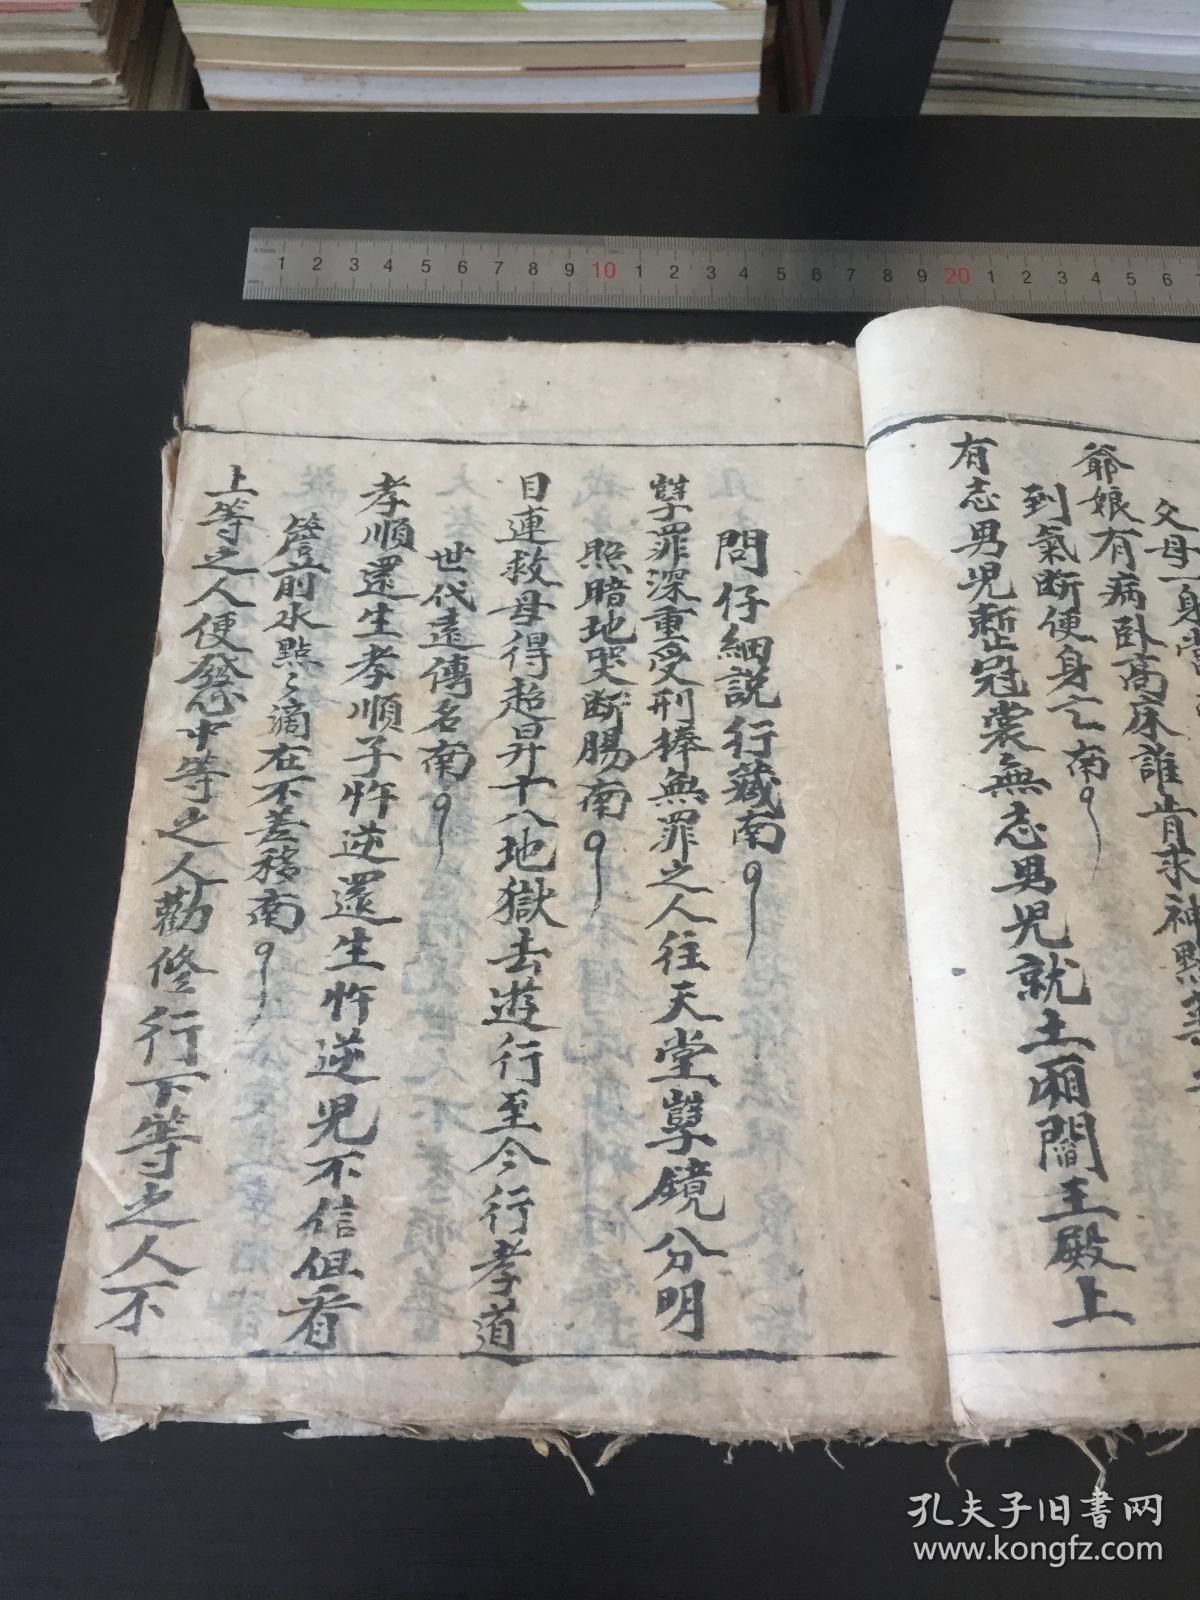 父母一身當
爺娘有病卧高床誰肯求神
到氣断便身亡南
有志男児整冠裳無志男児就土廂閻王殿上
問仔細説行藏南
孽罪深重受刑棒無罪之人往天堂孽鏡分明
照暗地哭断腸南
目連救母得超昇十八地獄去遊行至今行孝道
世代遠傳名南
孝順還生孝順子忤逆還生忤逆児不信但看
簷前水點々滴在不差移南
上等之人便發心中等之人勸修行下等之人不
孔夫子旧書网
www.kongfz.com
1 2 3 4 5 6 7 8 9 10 1 2 3 4 5 6 7 8 9 20 1 2 3 4 5 6